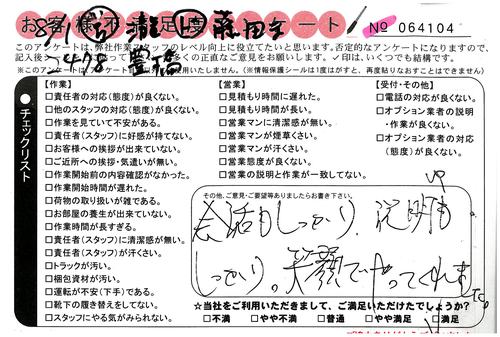 お客様不満足度アンケート
No 064104
8/1
このアンケートは、弊社作業スタッフのレベル向上に役立てたいと思います。否定的なアンケートになりますので、
記入後
多くの正直なご意見をお願いします。✓印は、いくつでも結構です。
※このアンケートは
利用いたしません。(※情報保護シールは1度はがすと、再度貼りなおすことはできません)
チェックリスト
【作業】
□責任者の対応(態度)が良くない。
□他のスタッフの対応(態度)が良くない。
□作業を見ていて不安がある。
□責任者(スタッフ)に好感が持てない。
□お客様への挨拶が出来ていない。
□ご近所への挨拶・気遣いが無い。
□作業開始前の内容確認がなかった。
□作業開始時間が遅れた。
□荷物の取り扱いが雑である。
□お部屋の養生が出来ていない。
□作業時間が長すぎる。
□責任者(スタッフ)に清潔感が無い。
□責任者(スタッフ)が汗くさい。
□トラックが汚い。
□梱包資材が汚い。
□運転が不安(下手)である。
□靴下の履き替えをしてない。
□スタッフにやる気がみられない。
【営業】
□見積もり時間に遅れた。
□見積もり時間が長い。
□営業マンに清潔感が無い。
□営業マンが煙草くさい。
□営業マンが汗くさい。
□営業態度が良くない。
□営業の説明と作業が一致してない。
【受付・その他】
□電話の対応が良くない。
□オプション業者の説明
・作業が良くない。
□オプション業者の対応
(態度)が良くない。
その他、ご意見・ご要望等ありましたらお書き下さい。
会話もしっかり、説明も
しっかり。笑顔でやってくれま
した。
☆当社をご利用いただきまして、ご満足いただけたでしょうか?
□不満 □やや不満 □普通 □やや満足 □満足